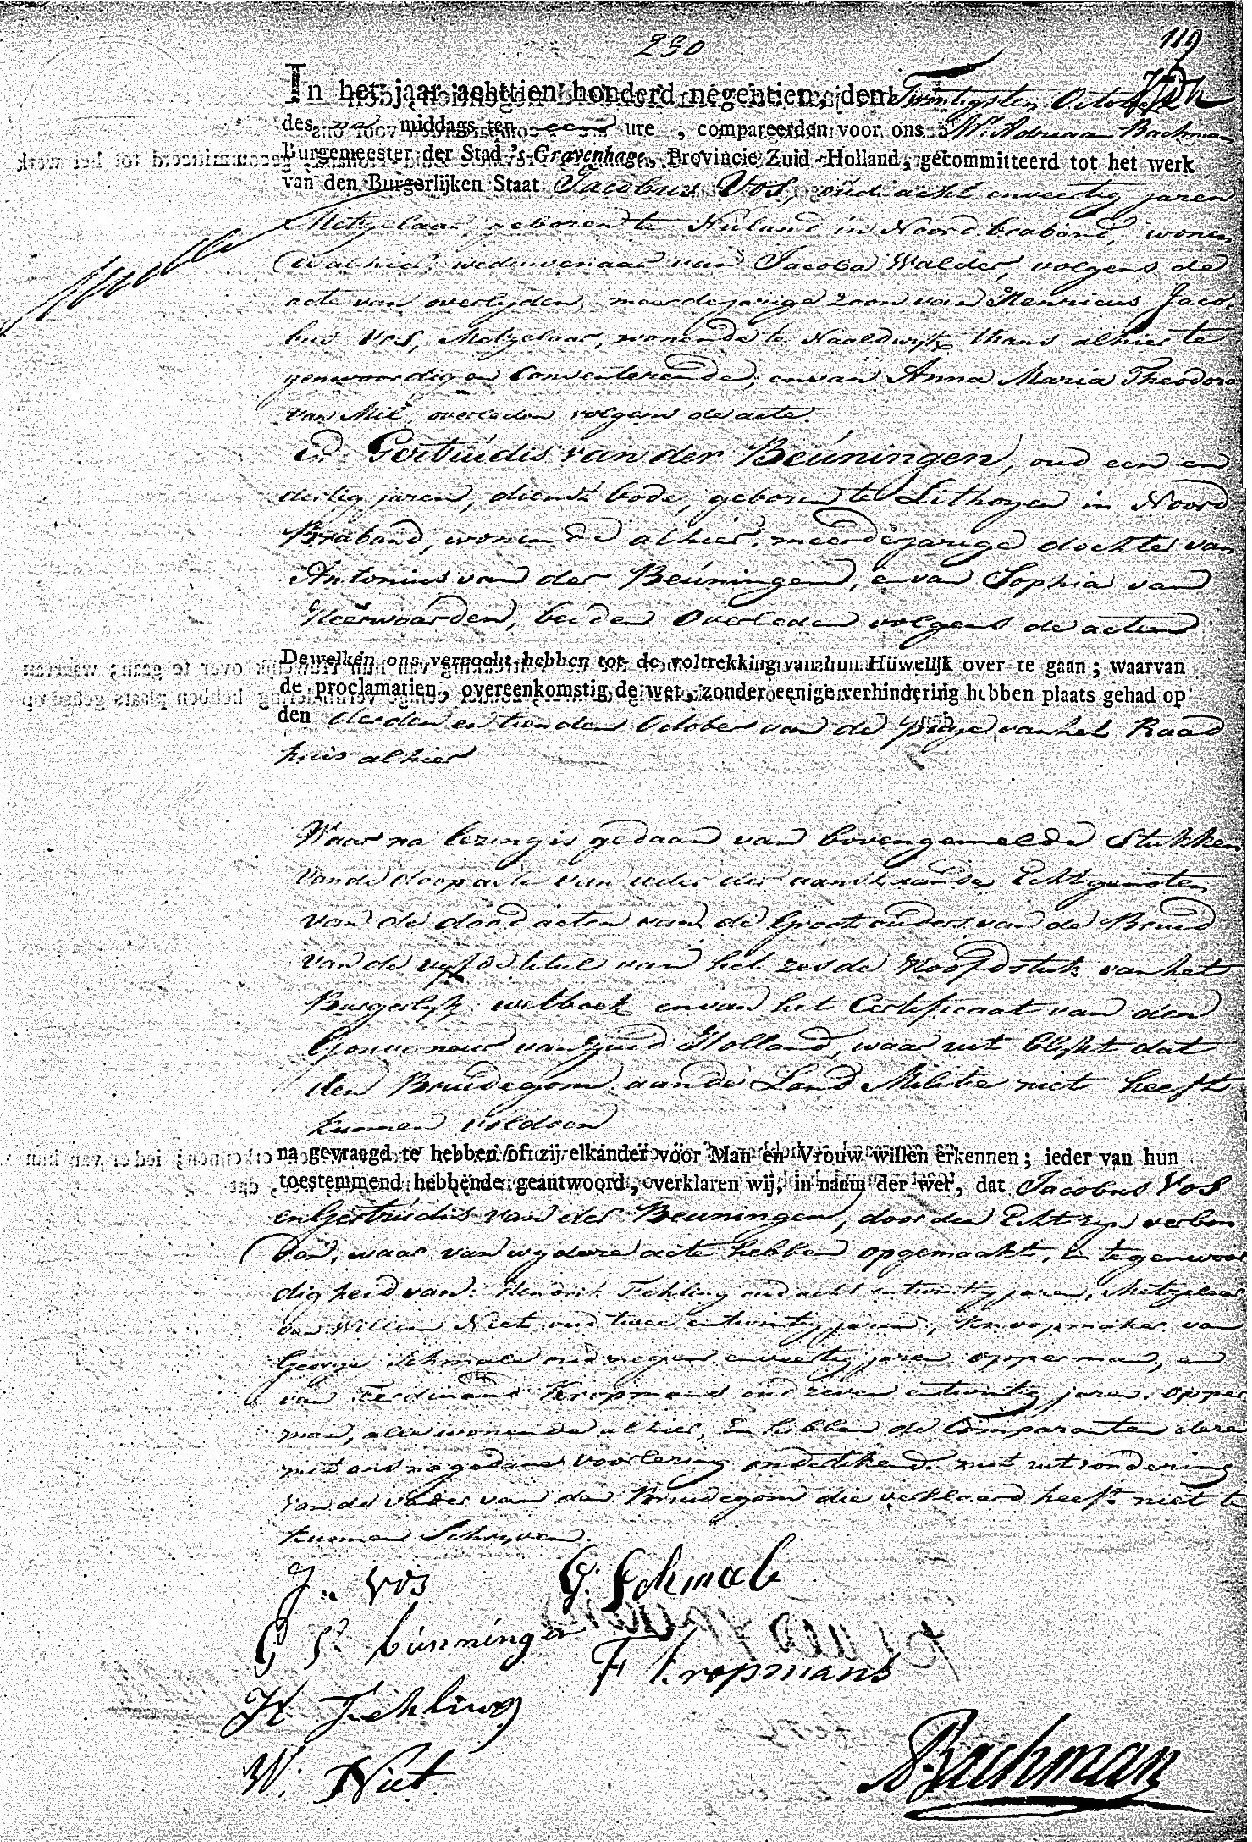 230
119
In het jaar achttien honderd negentien, den Twintigsten October
des na middags ten een ure, compareerden voor ons Mr. Adriaan Bachman
Burgemeester der Stad 's-Gravenhage, Provincie Zuid-Holland, gecommitteerd tot het werk
van den Burgerlijken Staat Jacobus Vos, oud acht en veertig jaren
Metzelaar, geboren te Nuland in Noord braband, wonen
alhier, weduwenaar van Jacoba Walder, volgens de
acte van overlijden, meerderjarige zoon van Henricus Jaco
bus Vos, Metzelaar, wonende te Naaldwijk, thans alhier te
genwoordig en Consenterende, en van Anna Maria Theodora
van Mil, overleden volgens de acte.
En Gertrudis van der Beúningen, oud een en
dertig jaren, dienst bode, geboren te Lithoyen in Noord
Braband, wonende alhier, meerderjarige dochter van
Antonius van der Beúningen, en van Sophia van
Heerwaarden, beiden overleden volgens de acten
Dewelken ons verzocht hebben tot de voltrekking van hun Huwelijk over te gaan; waarvan
de proclamatien, overeenkomstig de wet, zonder eenige verhindering hebben plaats gehad op
den derden en tienden October van de puije van het Raad
huis alhier
Waar na lezing is gedaan van bovengemelde Stukken
van de doop acte van ieder der aanstaande Echtgenoten
van de dood acten van de Grootouders van de Bruid
van de vyfde titul van het zesde Hoofdstuk van het
Burgerlyk wetboek en van het Certificaat van den
Gouverneur van Zuid Holland, waar uit blykt dat
den Bruidegom aan de Land Militie niet heeft
kunnen voldoen
na gevraagd te hebben of zij elkander voor Man en Vrouw willen erkennen; ieder van hun
toestemmend hebbende geantwoord, verklaren wij, in naam der wet, dat Jacobus Vos
en Gertrudis van der Beuningen, door den Echt zyn verbon
den, waar van wy deze acte hebben opgemaakt, in tegenwoor
digheid van Hendrik Fehling oud acht en twintig jaren, Metzelaar
van Willem Niet oud twee en twintig jaren, Knoopmaker van
George Schmale oud negen en veertig jaren opperman, en
van Ferdinand Kropmans oud zeven en twintig jaren opper
man, alle wonende alhier, En hebben de Comparanten deze
met ons na gedane voorlezing onderteekend met uitzondering
van de vader van den Bruidegom die verklaard heeft niet te
kunnen Schryven.
J. Vos
G. Schmale
G V. búnningen
F Kropmans
H Fehling
W. Niet
A Bachman